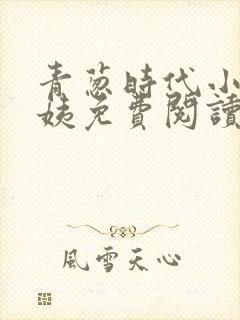 青蔥時代小
姨免費閱讀
風雪天心